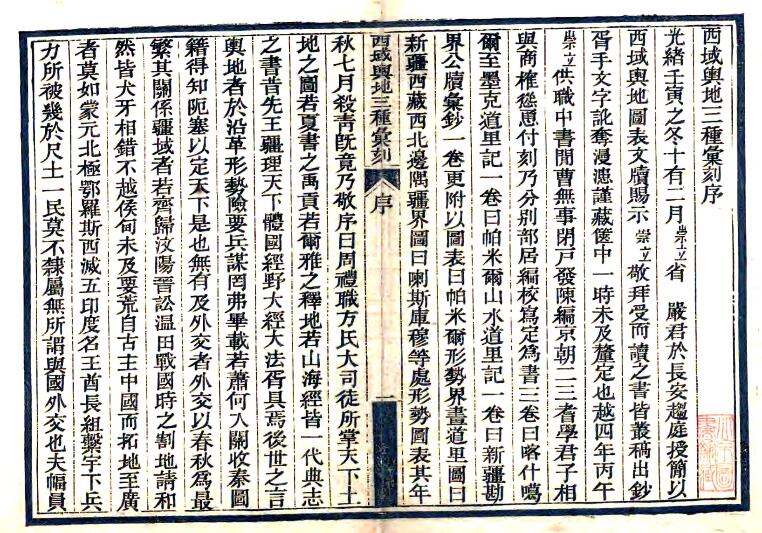 西域輿地三種彙刻序
光緒壬寅之冬十有二月崇立省　嚴君於長安趨庭授簡以
西域輿地圖表文牘賜示崇立敬拜受而讀之書皆叢稿出鈔
胥手文字訛奪漫漶謹藏篋中一時未及釐定也越四年丙午
崇立供職中書閒曹無事閉戶發陳編京朝二三耆學君子相
與商榷慫恿付刻乃分别部居編校寫定為書三卷曰喀什噶
爾至墨克道里記一卷曰帕米爾山水道里記一卷曰新疆勘
界公牘彙鈔一卷更附以圖表曰帕米爾形勢界畫道里圖曰
新疆西藏西北邊隅疆界圖曰喇斯庫穆等處形勢圖表其年
西域輿地三種彙刻　序　一
秋七月殺青旣竟乃敬序曰周禮職方氏大司徒所掌天下土
地之圖若夏書之禹貢若爾雅之釋地若山海經皆一代典志
之書昔先王疆理天下體國經野大經大法胥具焉後世之言
輿地者於沿革形勢險要兵謀罔弗畢載若蕭何入關收秦圖
籍得知阨塞以定天下是也無有及外交者外交以春秋為最
繁其關係疆域者若齊歸汶陽晉訟温田戰國時之割地請和
然皆犬牙相錯不越侯甸未及要荒自古主中國而拓地至廣
者莫如蒙元北極鄂羅斯西滅五印度名王酋長組繫宇下兵
力所被幾於尺土一民莫不隸屬無所謂與國外交也夫幅員